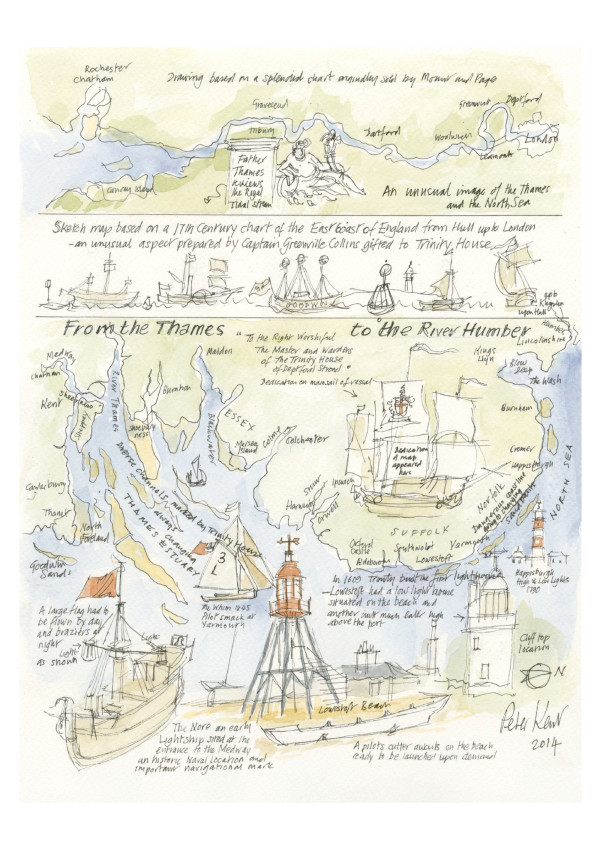 Rochester
Chatham
Drawing based on a splendid chart originally sold by Mount and Page
Gravesend
Tilbury
Dartford
Woolwich
Greenwich
Deptford
London
Canvey Island
Father
Thames
reviews
the Royal
Tidal stream
An unusual image of the Thames
and the North Sea
Sketch map based on a 17th Century chart of the East Coast of England from Hull up to London
- an unusual aspect prepared by Captain Greenville Collins gifted to Trinity House
GOODWIN
Kingston
upon Hull
Humber
From the Thames to the River Humber
"To the Right Worshipful
The Master and Wardens
of The Trinity House
of Deptford Strond"
Dedication on mainsail of vessel
Medway
Chatham
Kent
Sheerness
Sheppey
River Thames
Shoebury
ness
Burnham
Maldon
Blackwater
ESSEX
Mersea
Island
Colne
Colchester
Diverse channels marked by Trinity House
THAMES ESTUARY
Canterbury
Thanet
North
Foreland
Goodwin
Sands
Harwich
Stour
Ipswich
Orwell
Dedication
& map
appeared
here
Kings
Lynn
Lincolnshire
Blow
The Wash
Burnham
Cromer
Happisburgh
NORTH SEA
Norfolk
Dangerous coastline
Yarmouth
SUFFOLK
Orford
Castle
Aldeborough
Southwold
Lowestoft
Happisburgh
High & Low Lights
1790
3
L
The Whim 1845
Pilot smack at
Yarmouth
In 1609 Trinity built the first lighthouse
Lowestoft had a low light house
situated on the beach and
another built much taller high
above the port
Cliff top
location
N
A large flag had to
be flown by day
and braziers at
night
Light
as shown
Lowestoft Beach
The Nore an early
Lightship sited at the
entrance to the Medway
an historic Naval location and
important navigational mark
A pilots cutter awaits on the beach
ready to be launched upon demand
Peter Kent
2014